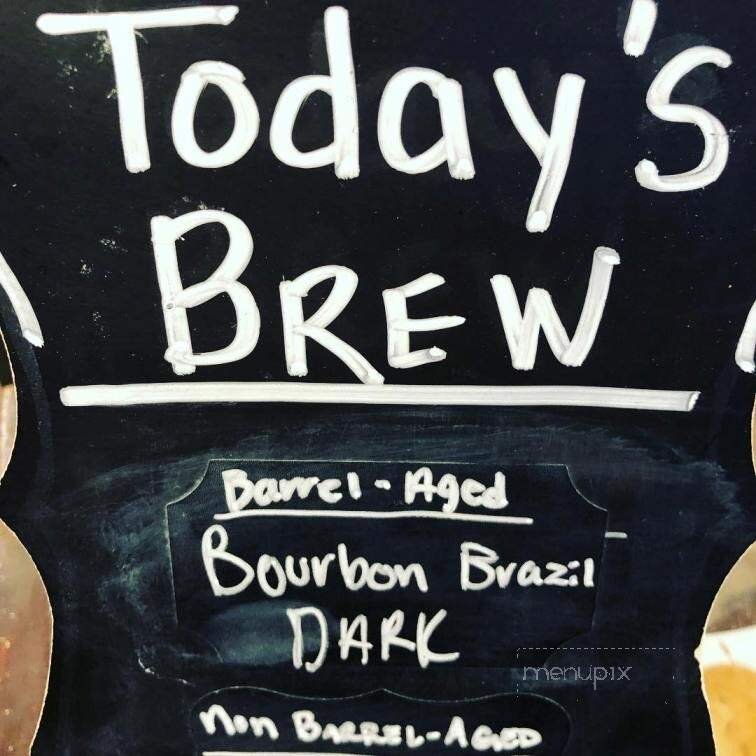 Today's
BREW
Barrel-Aged
Bourbon Brazil
DARK
menupix
Non BARREL-AGED